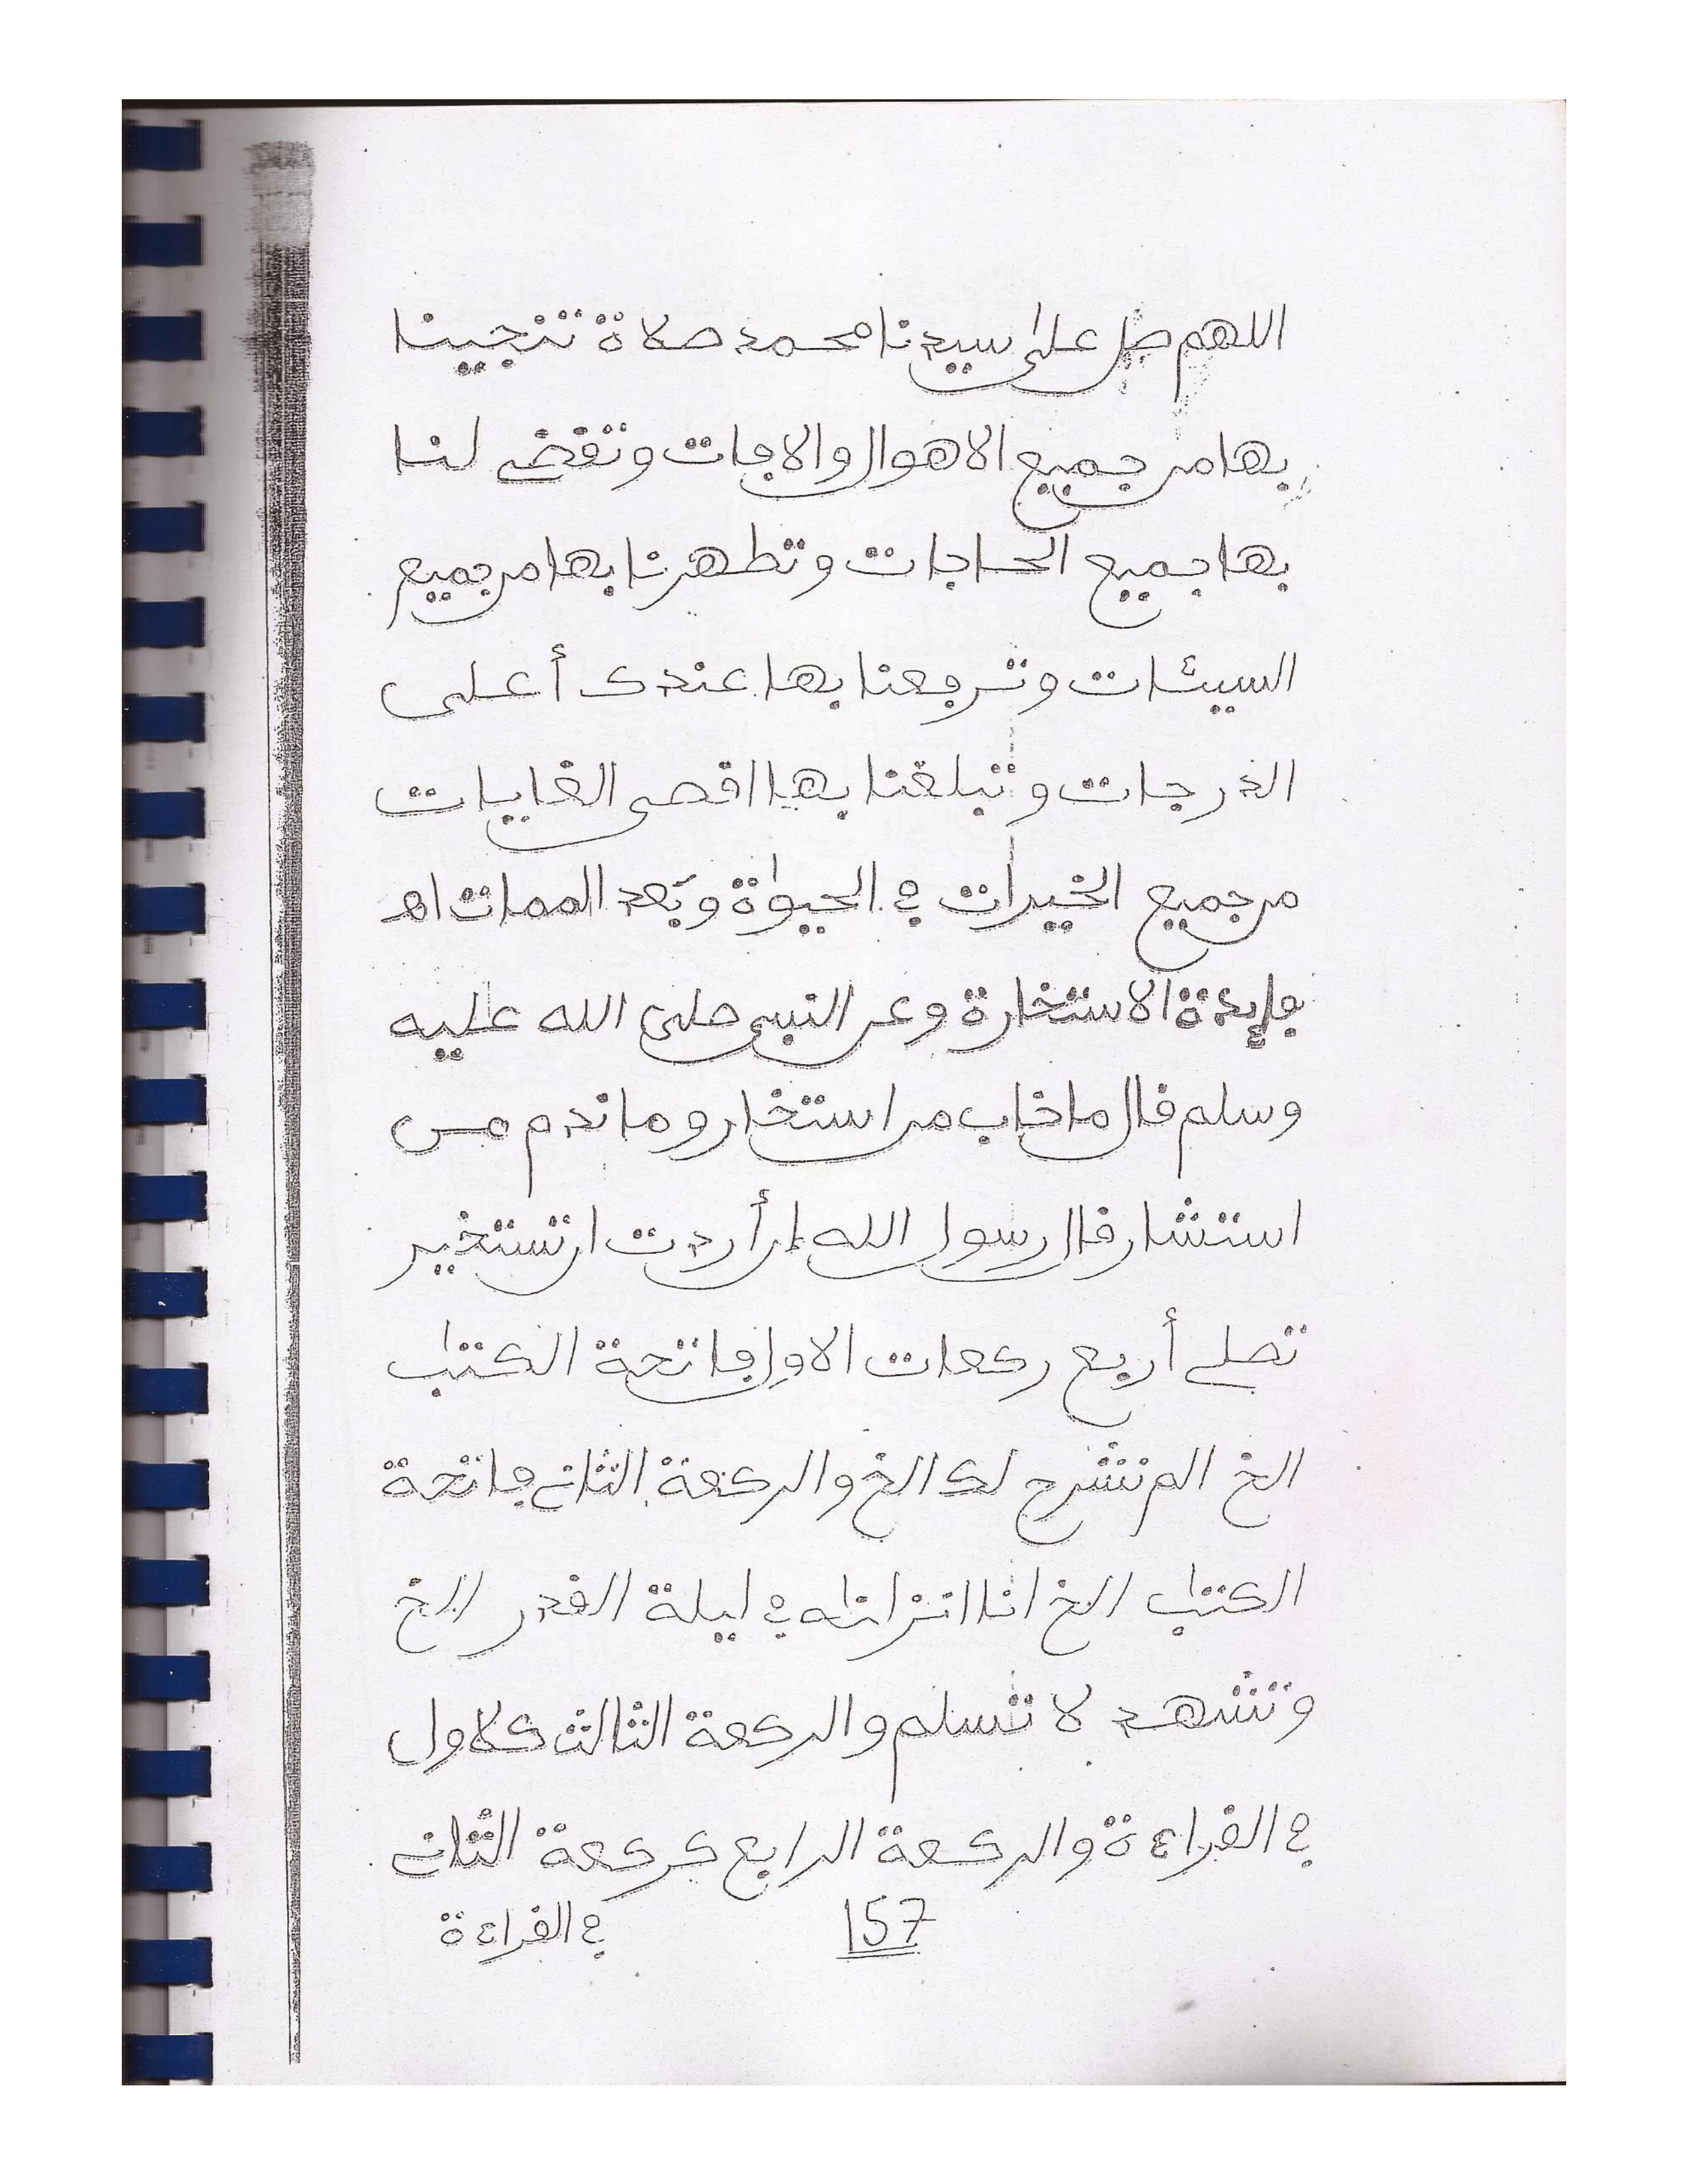 اللهم صل على سيدنا محمد صلاة تنجينا
بها من جميع الاهوال والافات وتقضى لنا
بها جميع الحاجات وتطهرنا بها من جميع
السيئات وترفعنا بها عندك أعلى
الدرجات وتبلغنا بها اقصى الغايات
من جميع الخيرات في الحيوٰة وبَعد الممات اهـ
فايدة الاستخارة وعن النبي صلى الله عليه
وسلم قال ما خاب من استخار وما ندم من
استشار قال رسول الله إن أردت ان تستخير
تصلى أربع ركعات الاول فاتحة الكتٰب
الخ الم نشرح لك الخ والركعة الثانى فاتحة
الكتٰب الخ انا انزلنٰه في ليلة القدر الخ
وتشهد لا تسلم والركعة الثالث كلاول
في القراءة والركعة الرابع كركعة الثانى
157
في القراءة